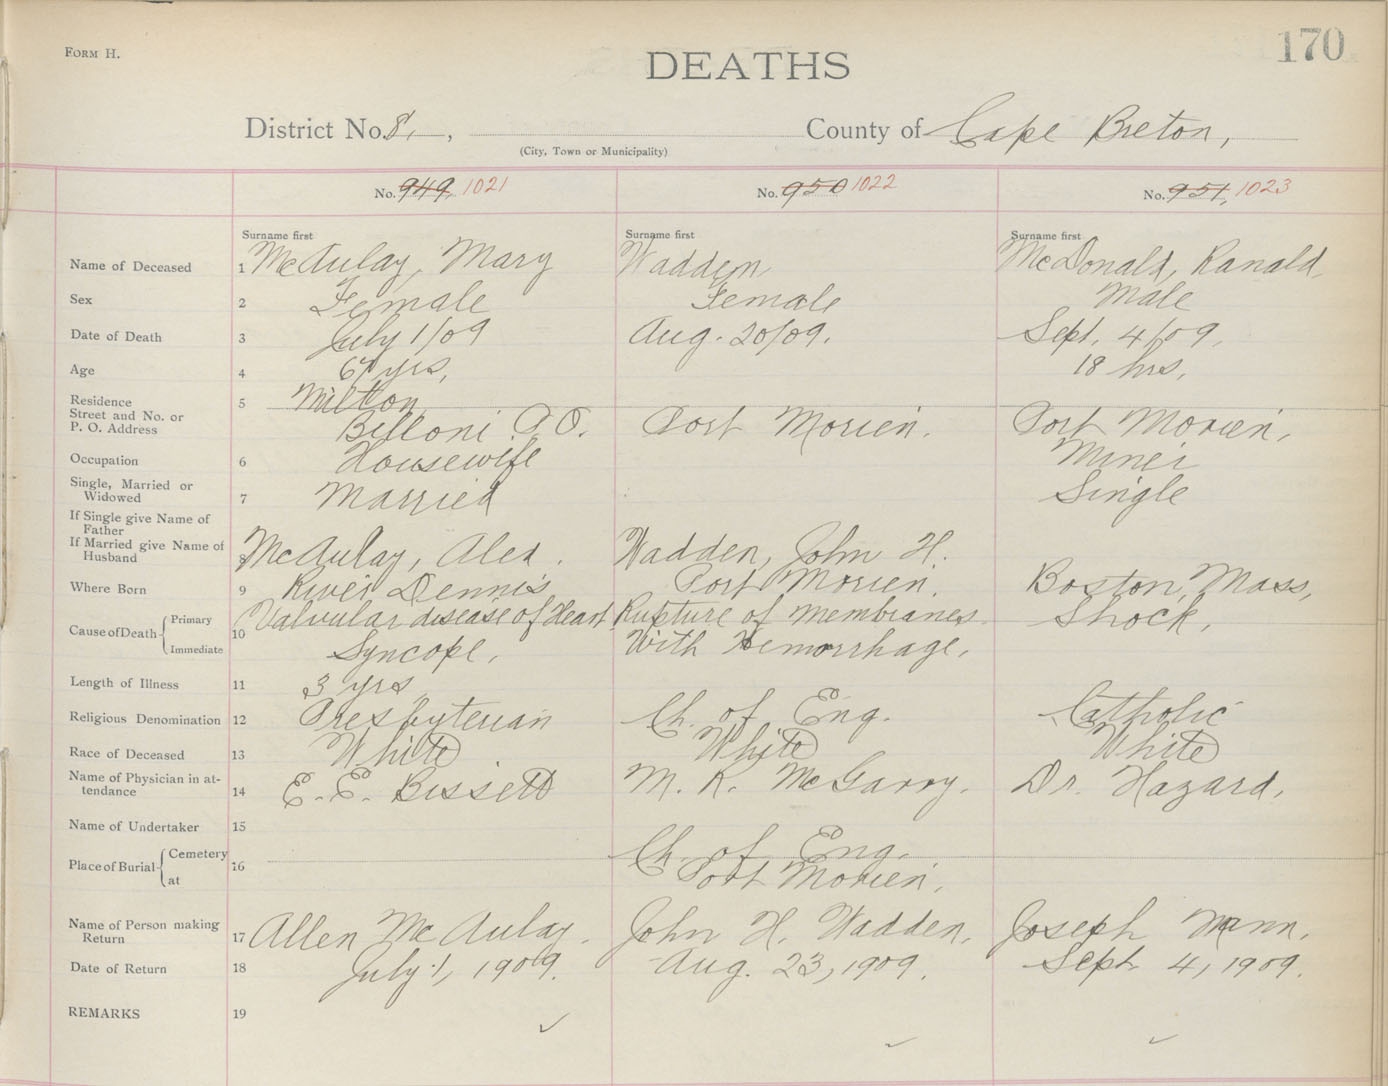 FORM H.
170
DEATHS
District No. 8, , County of Cape Breton,
(City, Town or Municipality)
No. 949, 1021 No. 950 1022 No. 951, 1023
Surname first Surname first Surname first
Name of Deceased 1 McAulay, Mary Wadden, McDonald, Ranald,
Sex 2 Female Female Male
Date of Death 3 July 1/09 Aug. 20/09. Sept. 4/09,
Age 4 yrs, 18 hrs,
Residence 5 Milton
Street and No. or
P. O. Address Belloni P.O. Port Morien. Port Morien,
Occupation 6 Housewife Miner
Single, Married or
Widowed 7 Married Single
If Single give Name of
Father
If Married give Name of
Husband 8 McAulay, Alex. Wadden, John H.
Where Born 9 River Dennis Port Morien. Boston, Mass,
Cause of Death Primary 10 Valvular disease of Heart, Rupture of Membranes Shock,
Immediate Syncope, With Hemorrhage,
Length of Illness 11 3 yrs,
Religious Denomination 12 Presbyterian Ch. of Eng. Catholic
Race of Deceased 13 White White White
Name of Physician in at-
tendance 14 E. E. Bissett M. R. McGarry. Dr. Hazard,
Name of Undertaker 15
Place of Burial Cemetery 16 Ch. of Eng.
at Port Morien,
Name of Person making
Return 17 Allen McAulay. John H. Wadden, Joseph Mann,
Date of Return 18 July 1, 1909. Aug. 23, 1909. Sept 4, 1909.
REMARKS 19